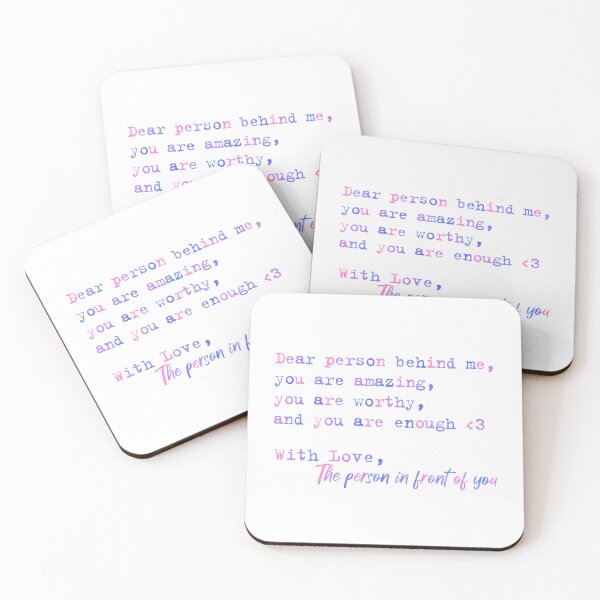 Dear person behind me,
you are amazing,
you are worthy,
and
Dear person behind me,
you are amazing,
you are worthy,
and you are enough <3
With Love,
The person
of you
Dear person behind me,
you are amazing,
you are worthy,
and you are enough <3
With Love,
The person in
Dear person behind me,
you are amazing,
you are worthy,
and you are enough <3
With Love,
The person in front of you